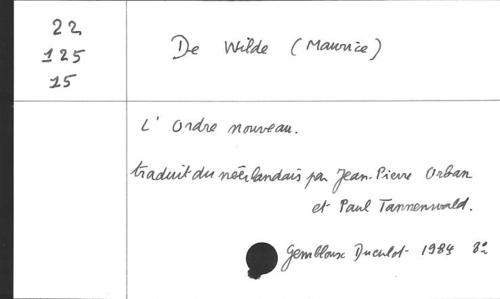 22
125
15
De Wilde (Maurice)
L'Ordre nouveau.
traduit du néérlandais par Jean-Pierre Orban
et Paul Tannenwald.
Gembloux Duculot - 1984 8°